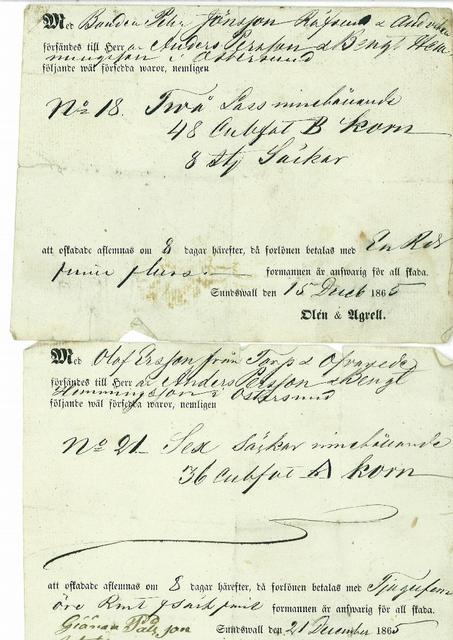 Med Bonden Pehr Jönsson
försändes till Herr Anders Persson & Bengt Hem
mingsson i Östersund
följande wäl försedda waror, nemligen
No 18. Två Lass innehållande
48 Cubfot B Korn
8 st Säckar
att oskadade aflemnas om 8 dagar härefter, då forlönen betalas med En Rdr
formannen är answarig för all skada.
Sundswall den 15 Decb 1865
Olén & Agrell.
Med Olof Ersson från Torp
försändes till Herr Anders Persson & Bengt
Hemmingsson i Östersund
följande wäl försedda waror, nemligen
No 21 Sex Säckar innehållande
36 Cubfot Korn
att oskadade aflemnas om 8 dagar härefter, då forlönen betalas med Tjugufem
öre Rmt formannen är answarig för all skada.
Sundswall den 21 December 1865